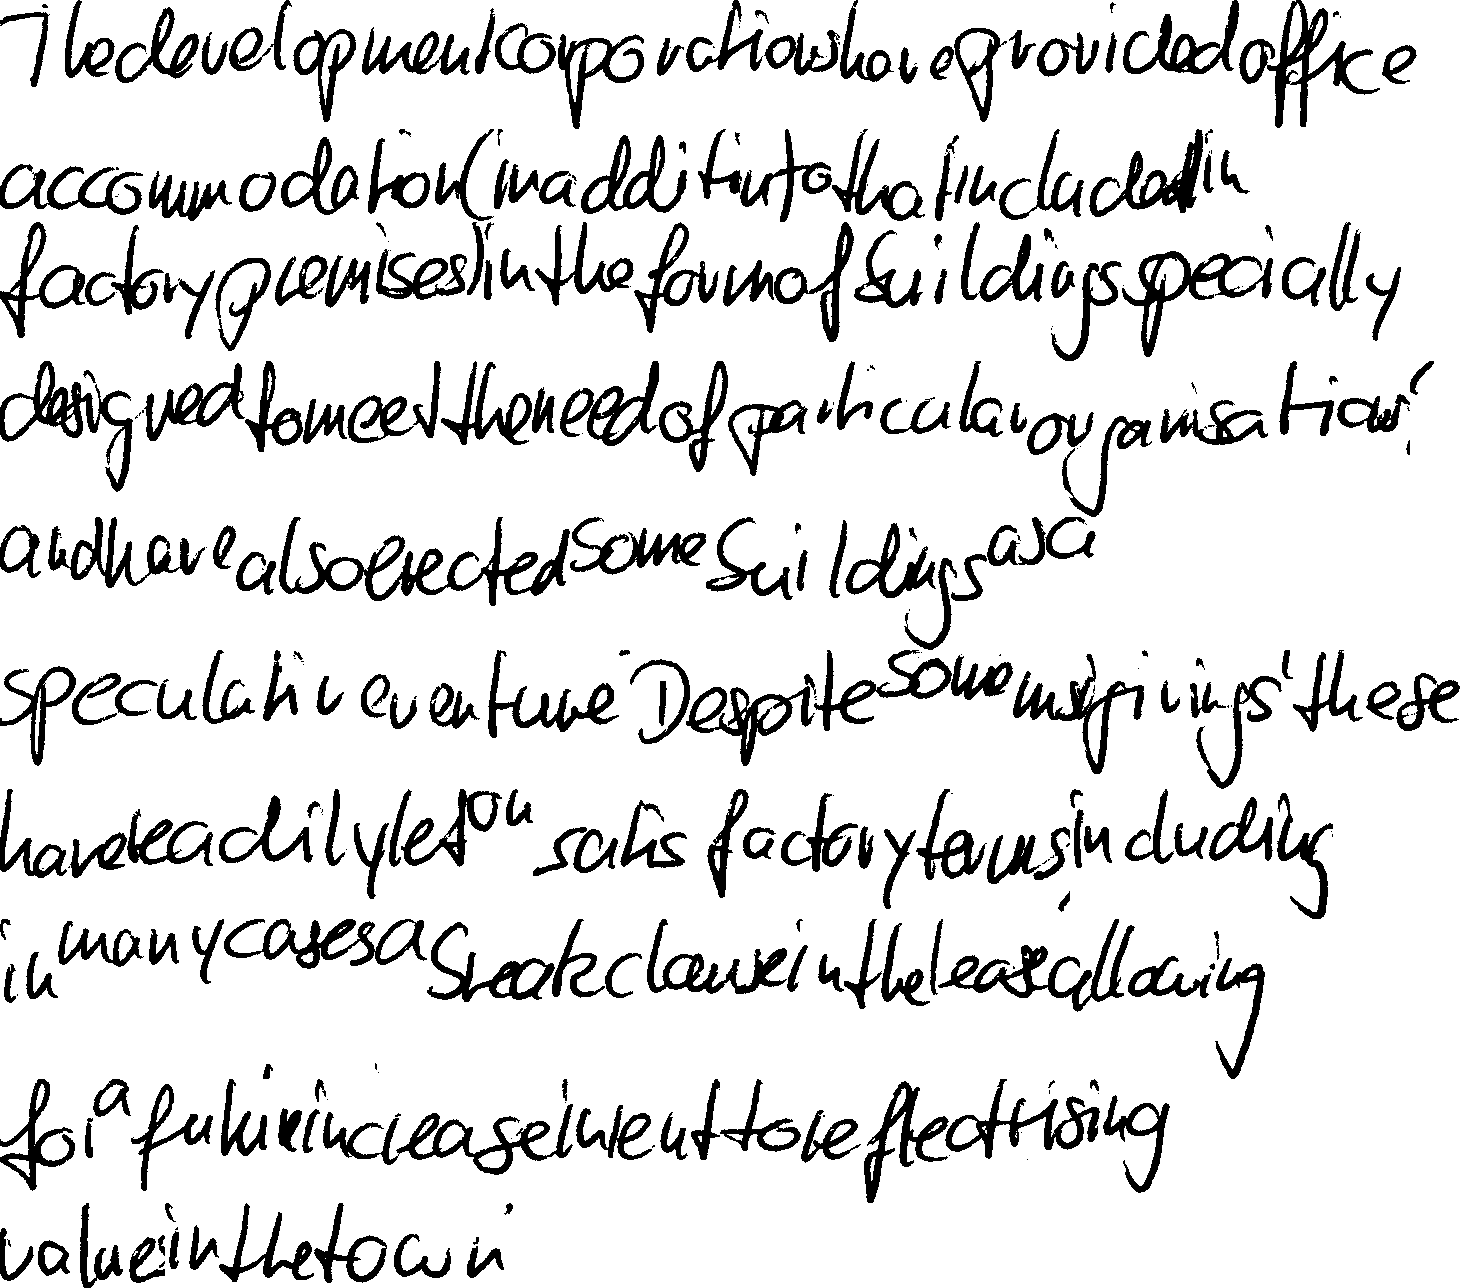 The development corporations have provided office
accommodation (in additin to that included in
factory premises) in the form of buildings specially
designed to meet the need of particular organisations,
and have also erected some buildings as a
speculative venture. Despite some misgivings' these
have readily let on satisfactory terms, including
in many cases a break clause in the lease allowing
for a future increase in rent to reflect rising
value in the town.